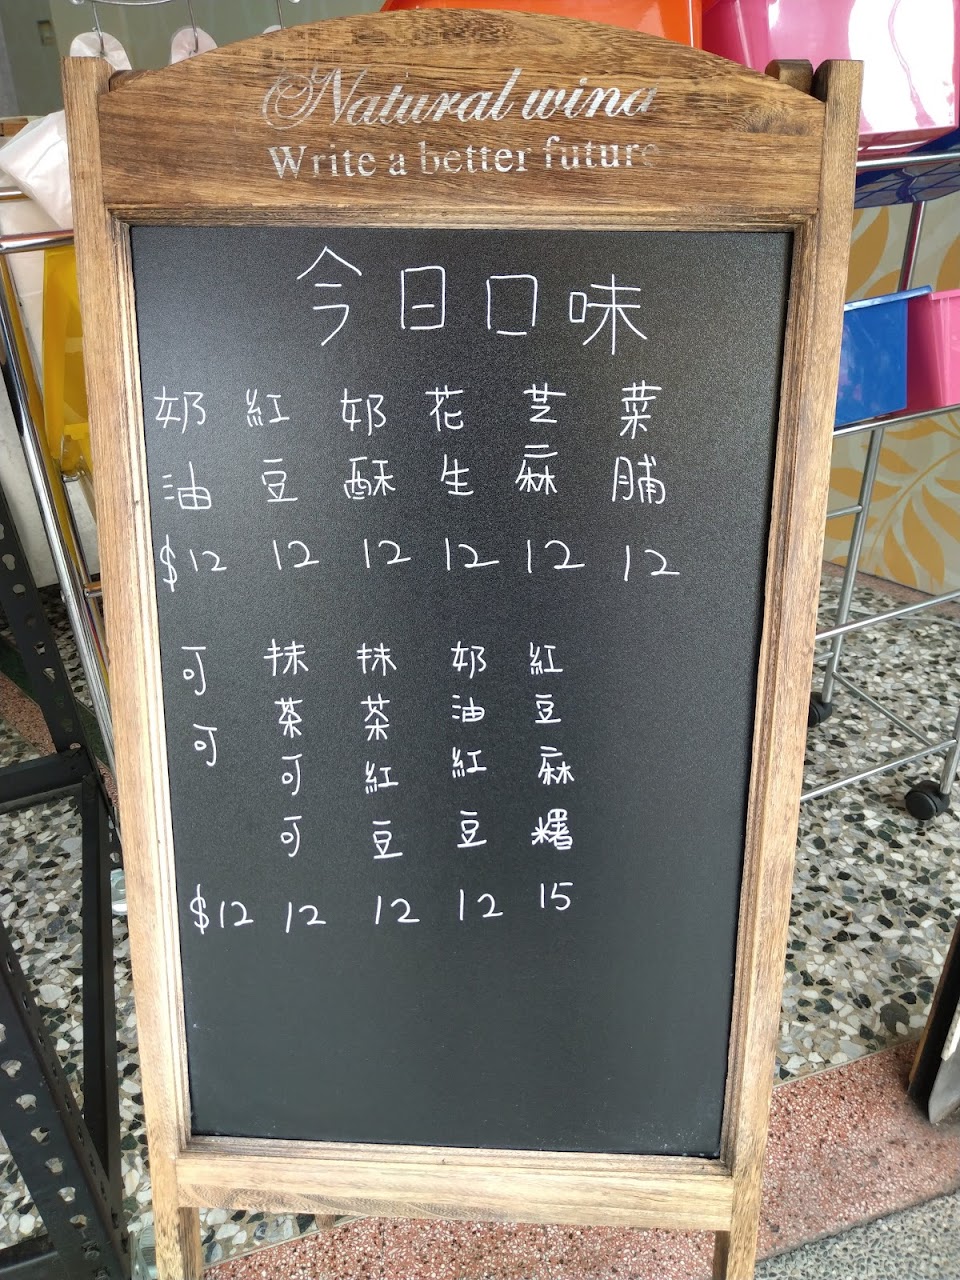 Natural wind
Write a better future
今日口味
奶油 紅豆 奶酥 花生 芝麻 菜脯
$12 12 12 12 12 12
可可 抹茶可可 抹茶紅豆 奶油紅豆 紅豆麻糬
$12 12 12 12 15